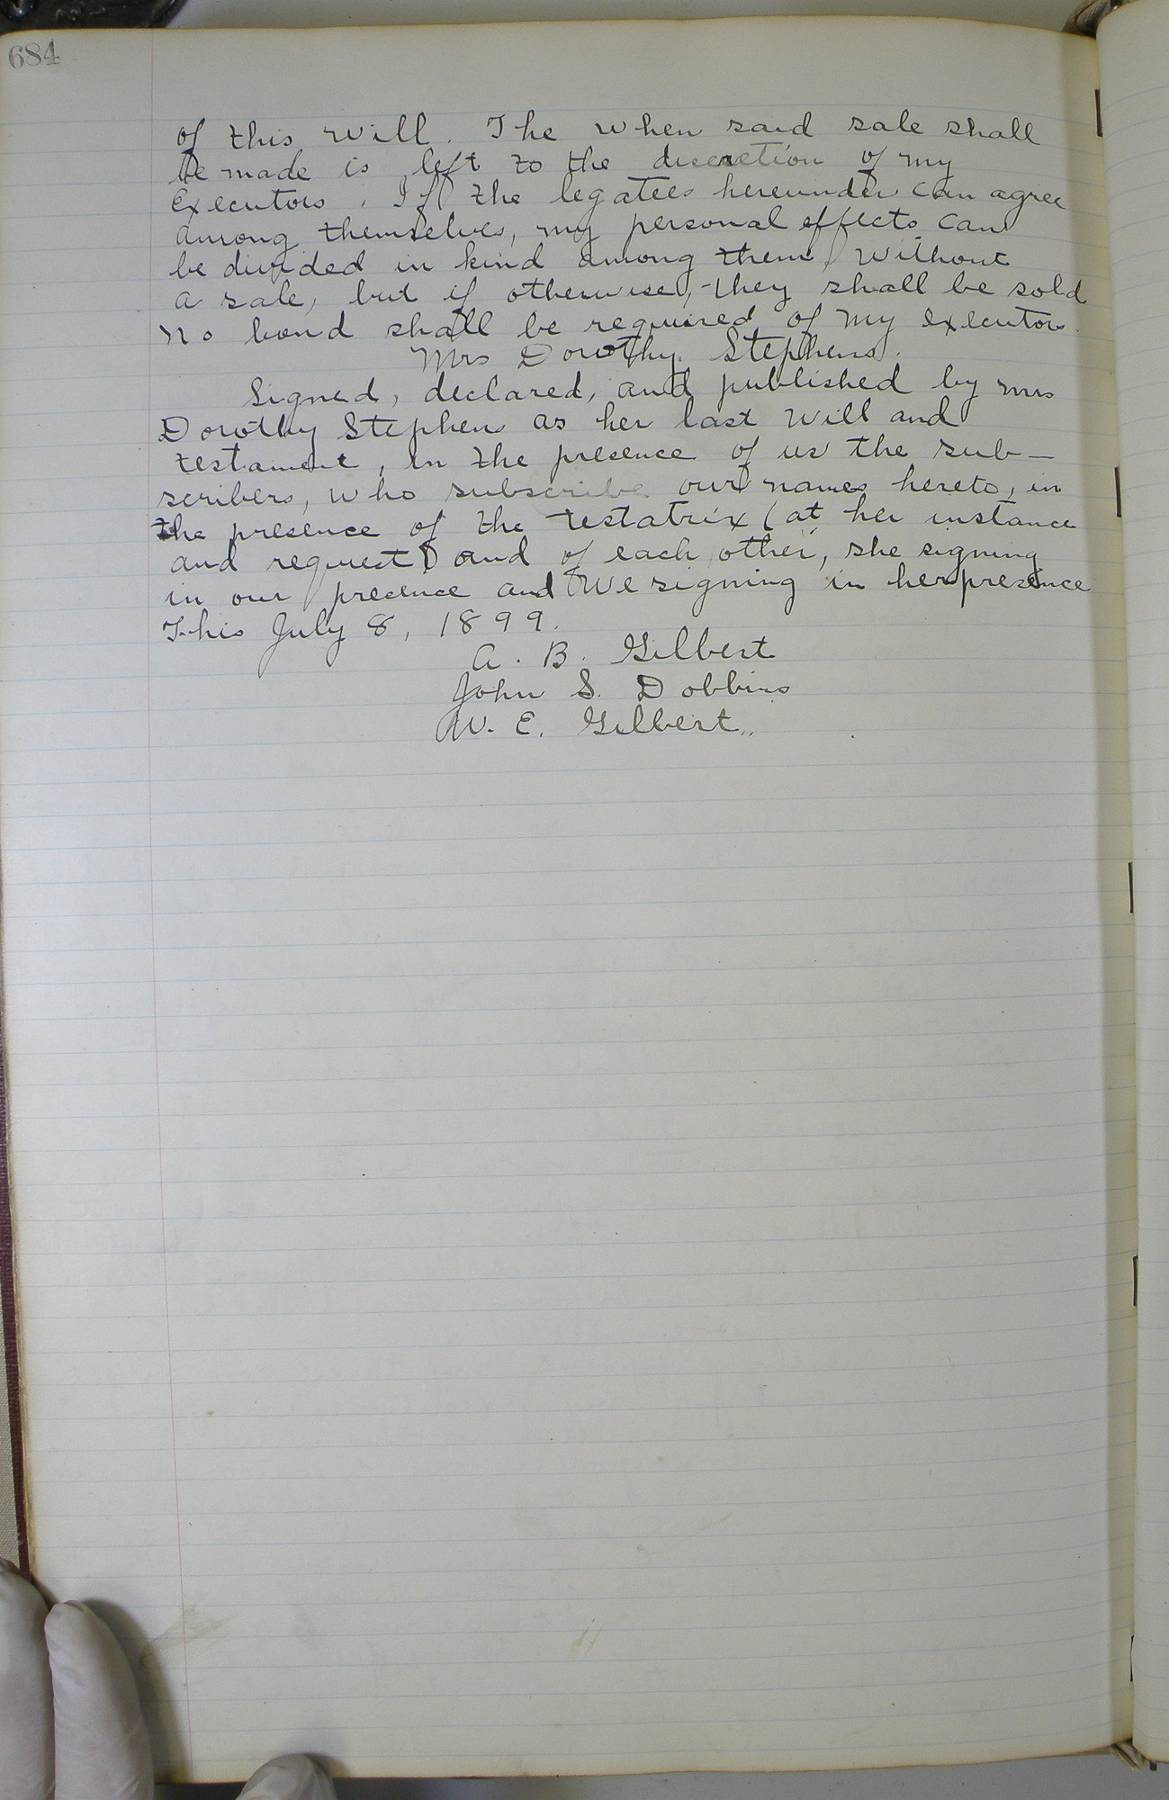 684
of this will. The when said sale shall
be made is left to the discretion of my
Executors. If the legatees hereunder can agree
among themselves, my personal effects can
be divided in kind among them, without
a sale, but if otherwise, they shall be sold
No bond shall be required of my executors.
Mrs Dorothy Stephens.
Signed, declared, and published by Mrs
Dorothy Stephens as her last will and
testament, in the presence of us the sub-
scribers, who subscribe our names hereto, in
the presence of the testatrix (at her instance
and request) and of each other, she signing
in our presence and we signing in her presence
This July 8, 1899.
A. B. Gilbert
John S. Dobbins
W. E. Gilbert.